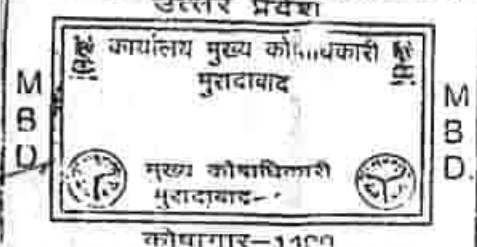 उत्तर प्रदेश
कार्यालय मुख्य कोषाधिकारी
मुरादाबाद
MBD
MBD.
मुख्य कोषाधिकारी
मुरादाबाद-
कोषागार-1100